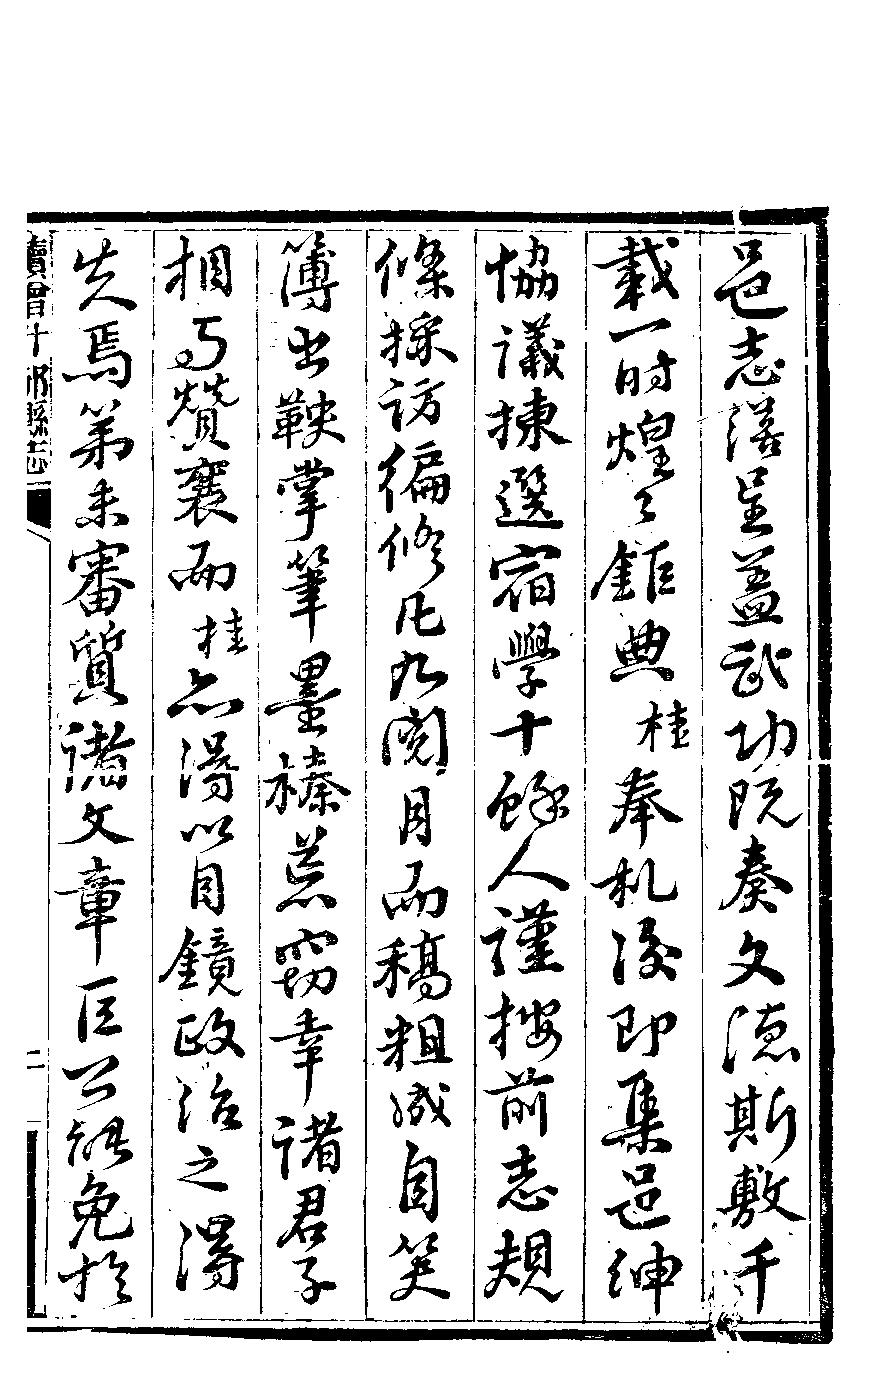 邑志落呈蓋武功既奏文德斯敷千
載一时煌〻鉅典桂奉札後即集邑紳
協議揀選宿學十餘人謹按前志規
條採訪徧修凡九閱月而稿粗成自笑
簿書鞅掌筆墨榛荒竊幸諸君子
相与贊襄而桂亦得以目鏡政治之得
失焉第未審質諸文章巨公能免於
續增什邡縣志
二